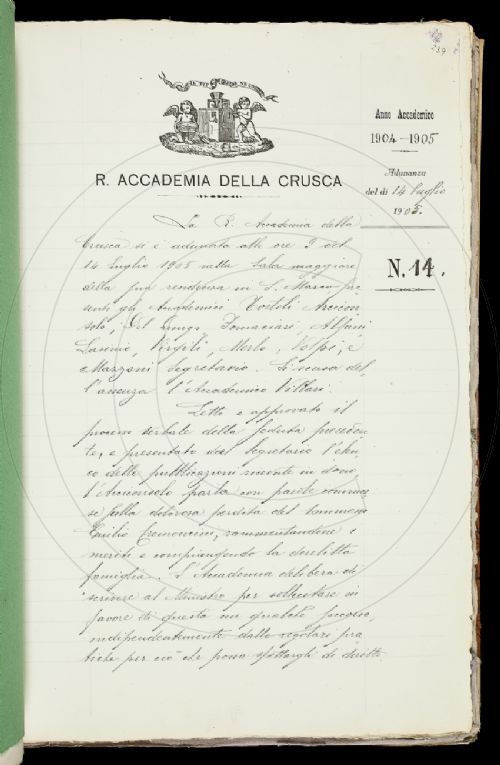 239
R. ACCADEMIA DELLA CRUSCA
Anno Accademico
1904-1905
Adunanza
del dì 14 luglio
1905.
N. 14.
La R. Accademia della
Crusca si è adunata alle ore 9 del
14 luglio 1905 nella Sala maggiore
della sua residenza in S. Marco pre
senti gli Accademici Tortoli Arcicon
solo, Del Lungo, Tommasini, Alfani
Lasinio, Virgili, Merlo, Volpi, e
Mazzoni Segretario. Si scusa del
l'assenza l'Accademico Villari.
Letto e approvato il
processo verbale della seduta preceden
te, e presentato dal Segretario l'elen
co delle pubblicazioni ricevute in dono
l'Arciconsolo parla con parole commos
se sulla dolorosa perdita del commesso
Emilio Cremoncini, rammentandone i
meriti e compiangendo la derelitta
famiglia. L'Accademia delibera di
scrivere al Ministro per sollecitare in
favore di questa un qualche soccorso,
indipendentemente dalle regolari pra
tiche per ciò che possa spettargli di diritto.